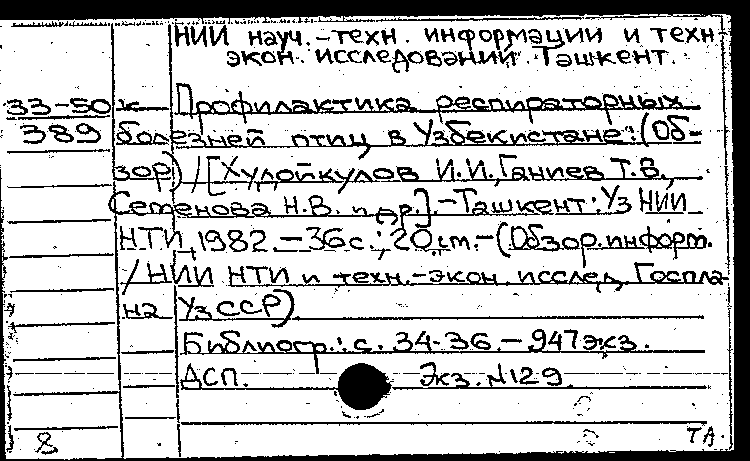 НИИ науч.-техн. информации и техн-
экон. исследований. Ташкент.
33-50 к Профилактика респираторных
389 болезней птиц в Узбекистане: (Об-
зор) / [Худойкулов И.И., Ганиев Т.В.,
Семенова Н.В. и др.].-Ташкент: Уз НИИ
НТИ, 1982. - 36с.; 20 см. - (Обзор. информ.
/ НИИ НТИ и техн.-экон. исслед. Госпла-
на УзССР).
Библиогр.: с. 34-36. - 947 экз.
ДСП. Экз. №129.
8 ТА.